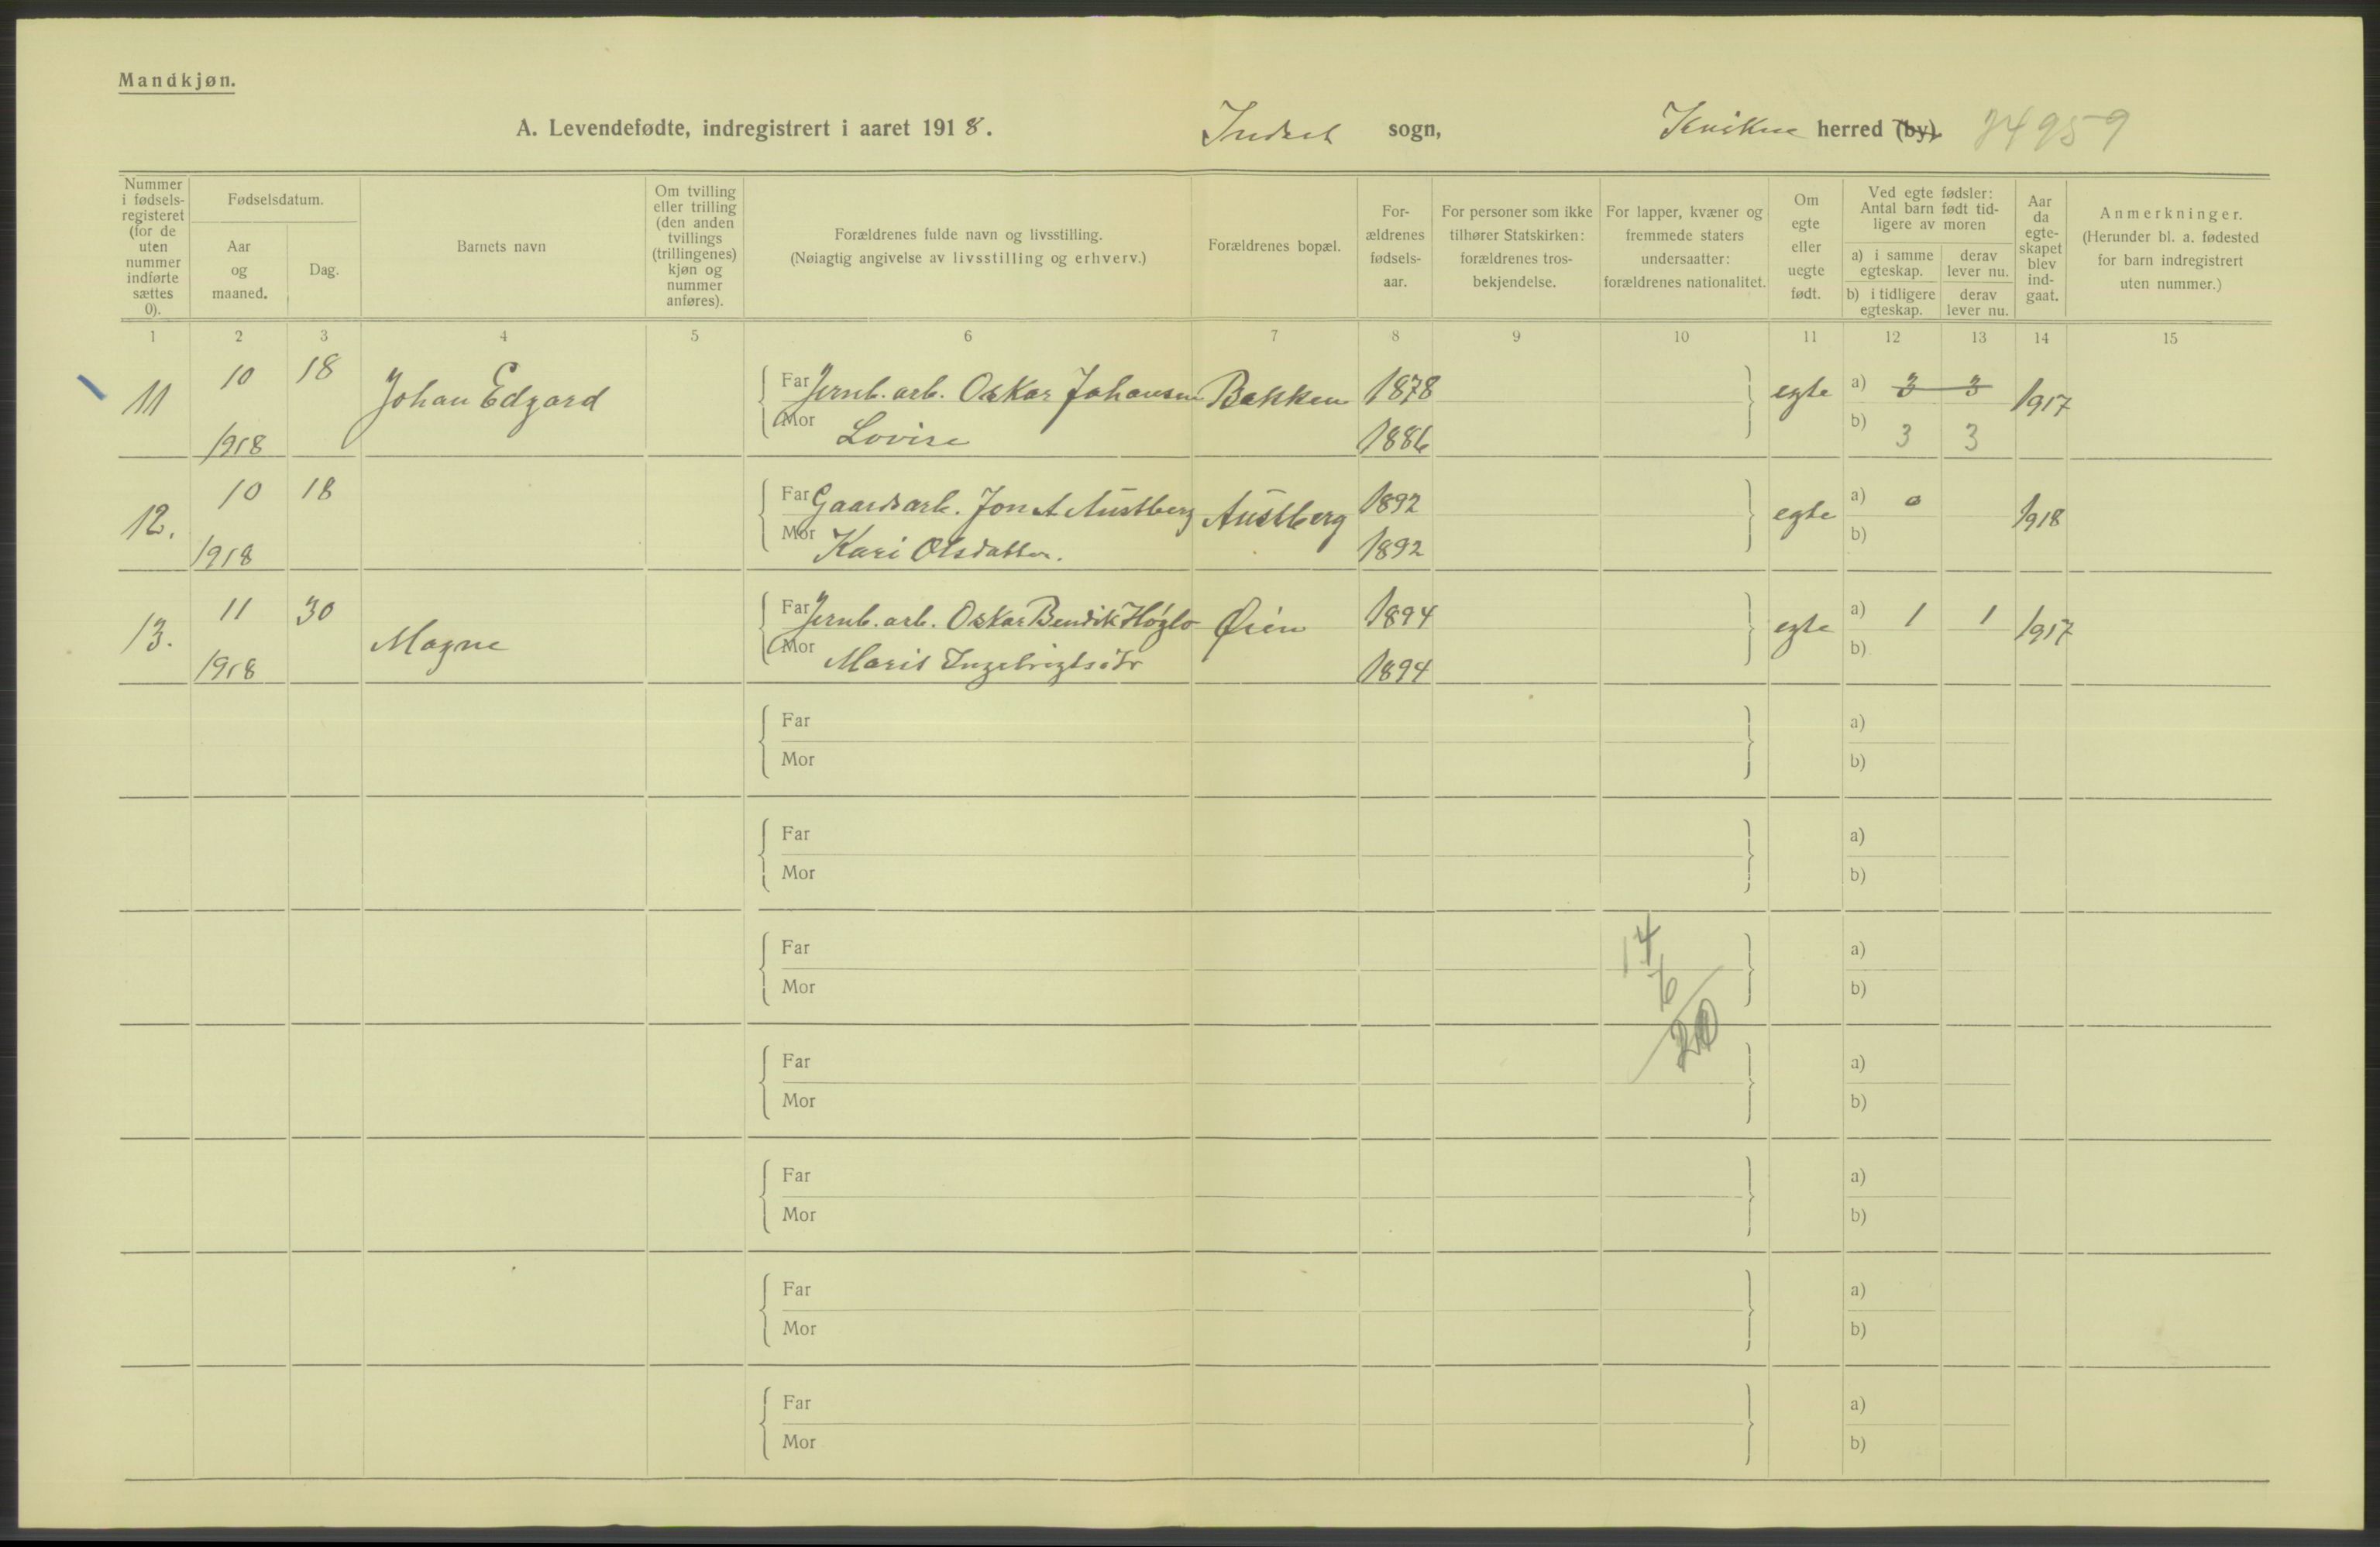 Mandkjøn.
A. Levendefødte, indregistrert i aaret 1918. Indset sogn, Kvikne herred (by).
Nummer i fødselsregisteret (for de uten nummer indførte sættes 0).
Fødselsdatum.
Aar og maaned.
Dag.
Barnets navn
Om tvilling eller trilling (den anden tvillings (trillingenes) kjøn og nummer anføres).
Forældrenes fulde navn og livsstilling.
(Nøiagtig angivelse av livsstilling og erhverv.)
Forældrenes bopæl.
Forældrenes fødselsaar.
For personer som ikke tilhører Statskirken: forældrenes trosbekjendelse.
For lapper, kvæner og fremmede staters undersaatter: forældrenes nationalitet.
Om egte eller uegte født.
Ved egte fødsler: Antal barn født tidligere av moren
a) i samme egteskap.
derav lever nu.
b) i tidligere egteskap.
derav lever nu.
Aar da egteskapet blev indgaat.
Anmerkninger.
(Herunder bl. a. fødested for barn indregistrert uten nummer.)
1 2 3 4 5 6 7 8 9 10 11 12 13 14 15
11 10 18 Johan Edgard Far Jernb. arb. Oskar Johansen Bakken 1878 egte a) 3 3 1917
1918 Mor Lovise 1886 b) 3 3
12. 10 18 Far Gaardsarb. Jon A Austberg Austberg 1892 egte a) 0 1918
1918 Mor Kari Olsdatter. 1892 b)
13. 11 30 Magne Far Jernb. arb. Oskar Bendik Høglo Øien 1894 egte a) 1 1 1917
1918 Mor Marit Ingebrigtsdtr 1894 b)
Far a)
Mor b)
Far a)
Mor b)
Far 14 a)
Mor 6 b)
Far 20 a)
Mor b)
Far a)
Mor b)
Far a)
Mor b)
Far a)
Mor b)